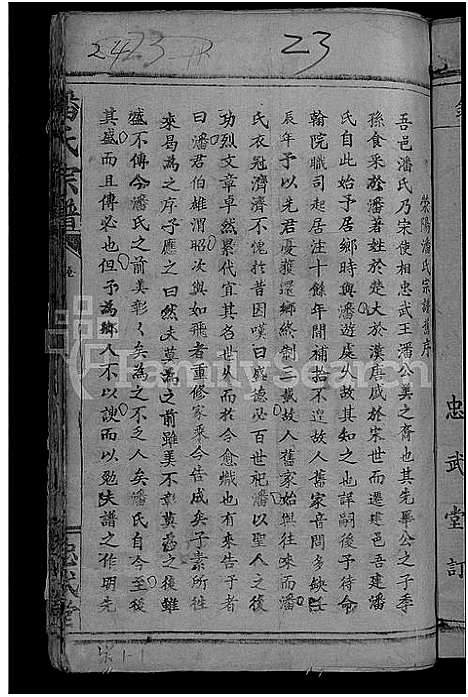 2423 23
榮陽潘氏宗譜舊序
吾邑潘氏乃宋使相忠武王潘公美之裔也其先畢公之子季
孫食采於潘著姓於楚大於漢唐盛於宋世而遷建邑吾建潘
氏自此始予居鄉時與潘遊處久故其知之也詳嗣後予待命
翰院職司起居注十餘年間補拾不遑故人舊家音問多缺
辰年予以先君憂獲還鄉終制三載故人舊家始與往來而潘
氏衣冠濟濟不愧於昔因嘆曰盛德必百世祀潘以聖人之後
功烈文章卓然累代宜其名世久而今愈熾也有來告于者
曰潘君伯雄渭昭次與如飛者重修家乘今告成矣子素所徃
來曷為之序予應之曰然夫莫為之前雖美不彰莫為之後雖
盛不傳今潘氏之前美彰彰矣為之不乏人矣潘氏自今至後
其盛而且傳必也但予為鄉人不以諛而以勉夫譜之作明先
忠武堂訂
潘氏宗譜
FamilySearch